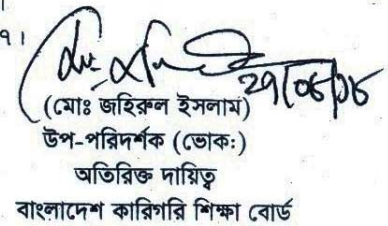 ৭।
২৭/০৮/১৮
(মোঃ জহিরুল ইসলাম)
উপ-পরিদর্শক (ভোক:)
অতিরিক্ত দায়িত্ব
বাংলাদেশ কারিগরি শিক্ষা বোর্ড